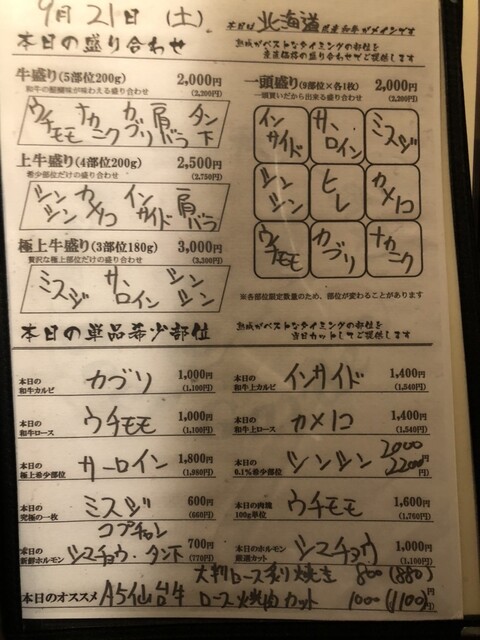 9月21日（土）
本日は北海道産和牛がメインです
本日の盛り合わせ
熟成がベストなタイミングの部位を
産直価格の盛り合わせでご提供します
牛盛り(5部位200g) 2,000円
和牛の醍醐味が味わえる盛り合わせ (2,200円)
ウチモモ ナカニク カブリ 肩バラ タン下
上牛盛り(4部位200g) 2,500円
希少部位だけの盛り合わせ (2,750円)
シンシン カメノコ インサイド 肩バラ
極上牛盛り(3部位180g) 3,000円
贅沢な極上部位だけの盛り合わせ (3,300円)
ミスジ サーロイン シンシン
一頭盛り(9部位×各1枚) 2,000円
一頭買いだから出来る盛り合わせ (2,200円)
インサイド サーロイン ミスジ
シンシン ヒレ カメノコ
ウチモモ カブリ ナカニク
※各部位限定数量のため、部位が変わることがあります
本日の単品希少部位
熟成がベストなタイミングの部位を
当日カットしてご提供します
本日の和牛カルビ カブリ 1,000円 (1,100円)
本日の和牛上カルビ インサイド 1,400円 (1,540円)
本日の和牛ロース ウチモモ 1,000円 (1,100円)
本日の和牛上ロース カメノコ 1,400円 (1,540円)
本日の極上希少部位 サーロイン 1,800円 (1,980円)
本日の0.1%希少部位 シンシン 2000円 2200円
本日の究極の一枚 ミスジ 600円 (660円)
本日の肉塊100g単位 ウチモモ 1,600円 (1,760円)
本日の新鮮ホルモン コプチャン シマチョウ・タン下 700円 (770円)
本日のホルモン厳選カット シマチョウ 1,000円 (1,100円)
本日のオススメ A5仙台牛
大判ロース炙り焼き 800(880)円
ロース焼肉カット 1000(1100)円